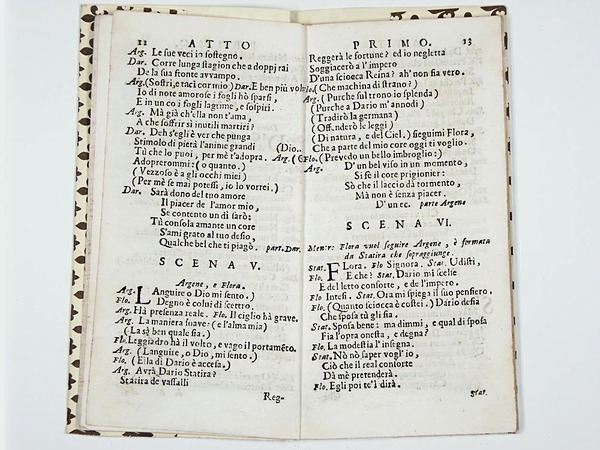 12 ATTO
Arg. Le sue veci in sostegno.
Dar. Corre lunga stagion che a doppj rai
De la sua fronte avvampo.
Arg. (Sostri, e taci cor mio) Dar. E ben più volte
Io di note amorose i fogli hò sparsi,
E in un co i fogli lagrime, e sospiri.
Arg. Mà già ch'ella non t'ama,
A che soffrir sì inutili martiri?
Dar. Deh s'egli è ver che punga (Dio..
Stimolo di pietà l'anime grandi
Tù che lo puoi, per mè t'adopra. Arg. (
Adoprerommi: (o quanto.)
(Vezzoso è a gli occhi miei)
(Per mè se mai potessi, io lo vorrei.)
Dar. Sarà dono del tuo amore
Il piacer de l'amor mio,
Se contento un dì sarò:
Tù consola amante un core
S'ami grato al tuo desio,
Qualche bel che ti piagò. part. Dar.
SCENA V.
Argene, e Flora.
Arg. LAnguire o Dio mi sento.)
Flo. Degno è colui di scettro.
Arg. Hà presenza reale. Flo. Il ciglio hà grave.
Arg. La maniera soave: (e l'alma mia)
(La sè ben quale sia.)
Flo. Leggiadro hà il volto, e vago il portamēto.
Arg. (Languire, o Dio, mi sento.)
Flo. (Ella di Dario è accesa.)
Arg. Avrà Dario Statira?
Statira de vassalli
Reg-
PRIMO. 13
Reggerà le fortune? ed io negletta
Soggiacerò a l'impero
D'una sciocca Reina? ah' non fia vero.
Flo. (Che machina di strano?)
Arg. (Purche sul trono io splenda)
(Purche a Dario m'annodi)
(Tradirò la germana)
(Offenderò le leggi)
(Di natura, e del Ciel.) sieguimi Flora,
Che a parte del mio core oggi ti voglio.
Flo. (Prevedo un bello imbroglio:)
Arg. D'un bel viso in un momento,
Si fè il core prigionier:
Sò che il laccio dà tormento,
Mà non è senza piacer.
D'un ec. parte Argene
SCENA VI.
Mentr: Flora vuol seguire Argene, è fermata
da Statira che sopraggiunge.
Stat. FLora. Flo Signora. Stat. Udisti,
Flo. E che? Stat. Dario mi scelse
E del letto consorte, e de l'impero.
Flo Intesi. Stat. Ora mi spiega il suo pensiero.
Flo. (Quanto sciocca è costei.) Dario desia
Che sposa tù gli sia.
Stat. Sposa bene: ma dimmi, e qual di sposa
Fia l'opra onesta, e degna?
Flo. La modestia l'insegna.
Stat. Nò nò saper vogl'io,
Ciò che il real consorte
Dà mè pretenderà.
Flo. Egli poi te'l dirà.
Stat.